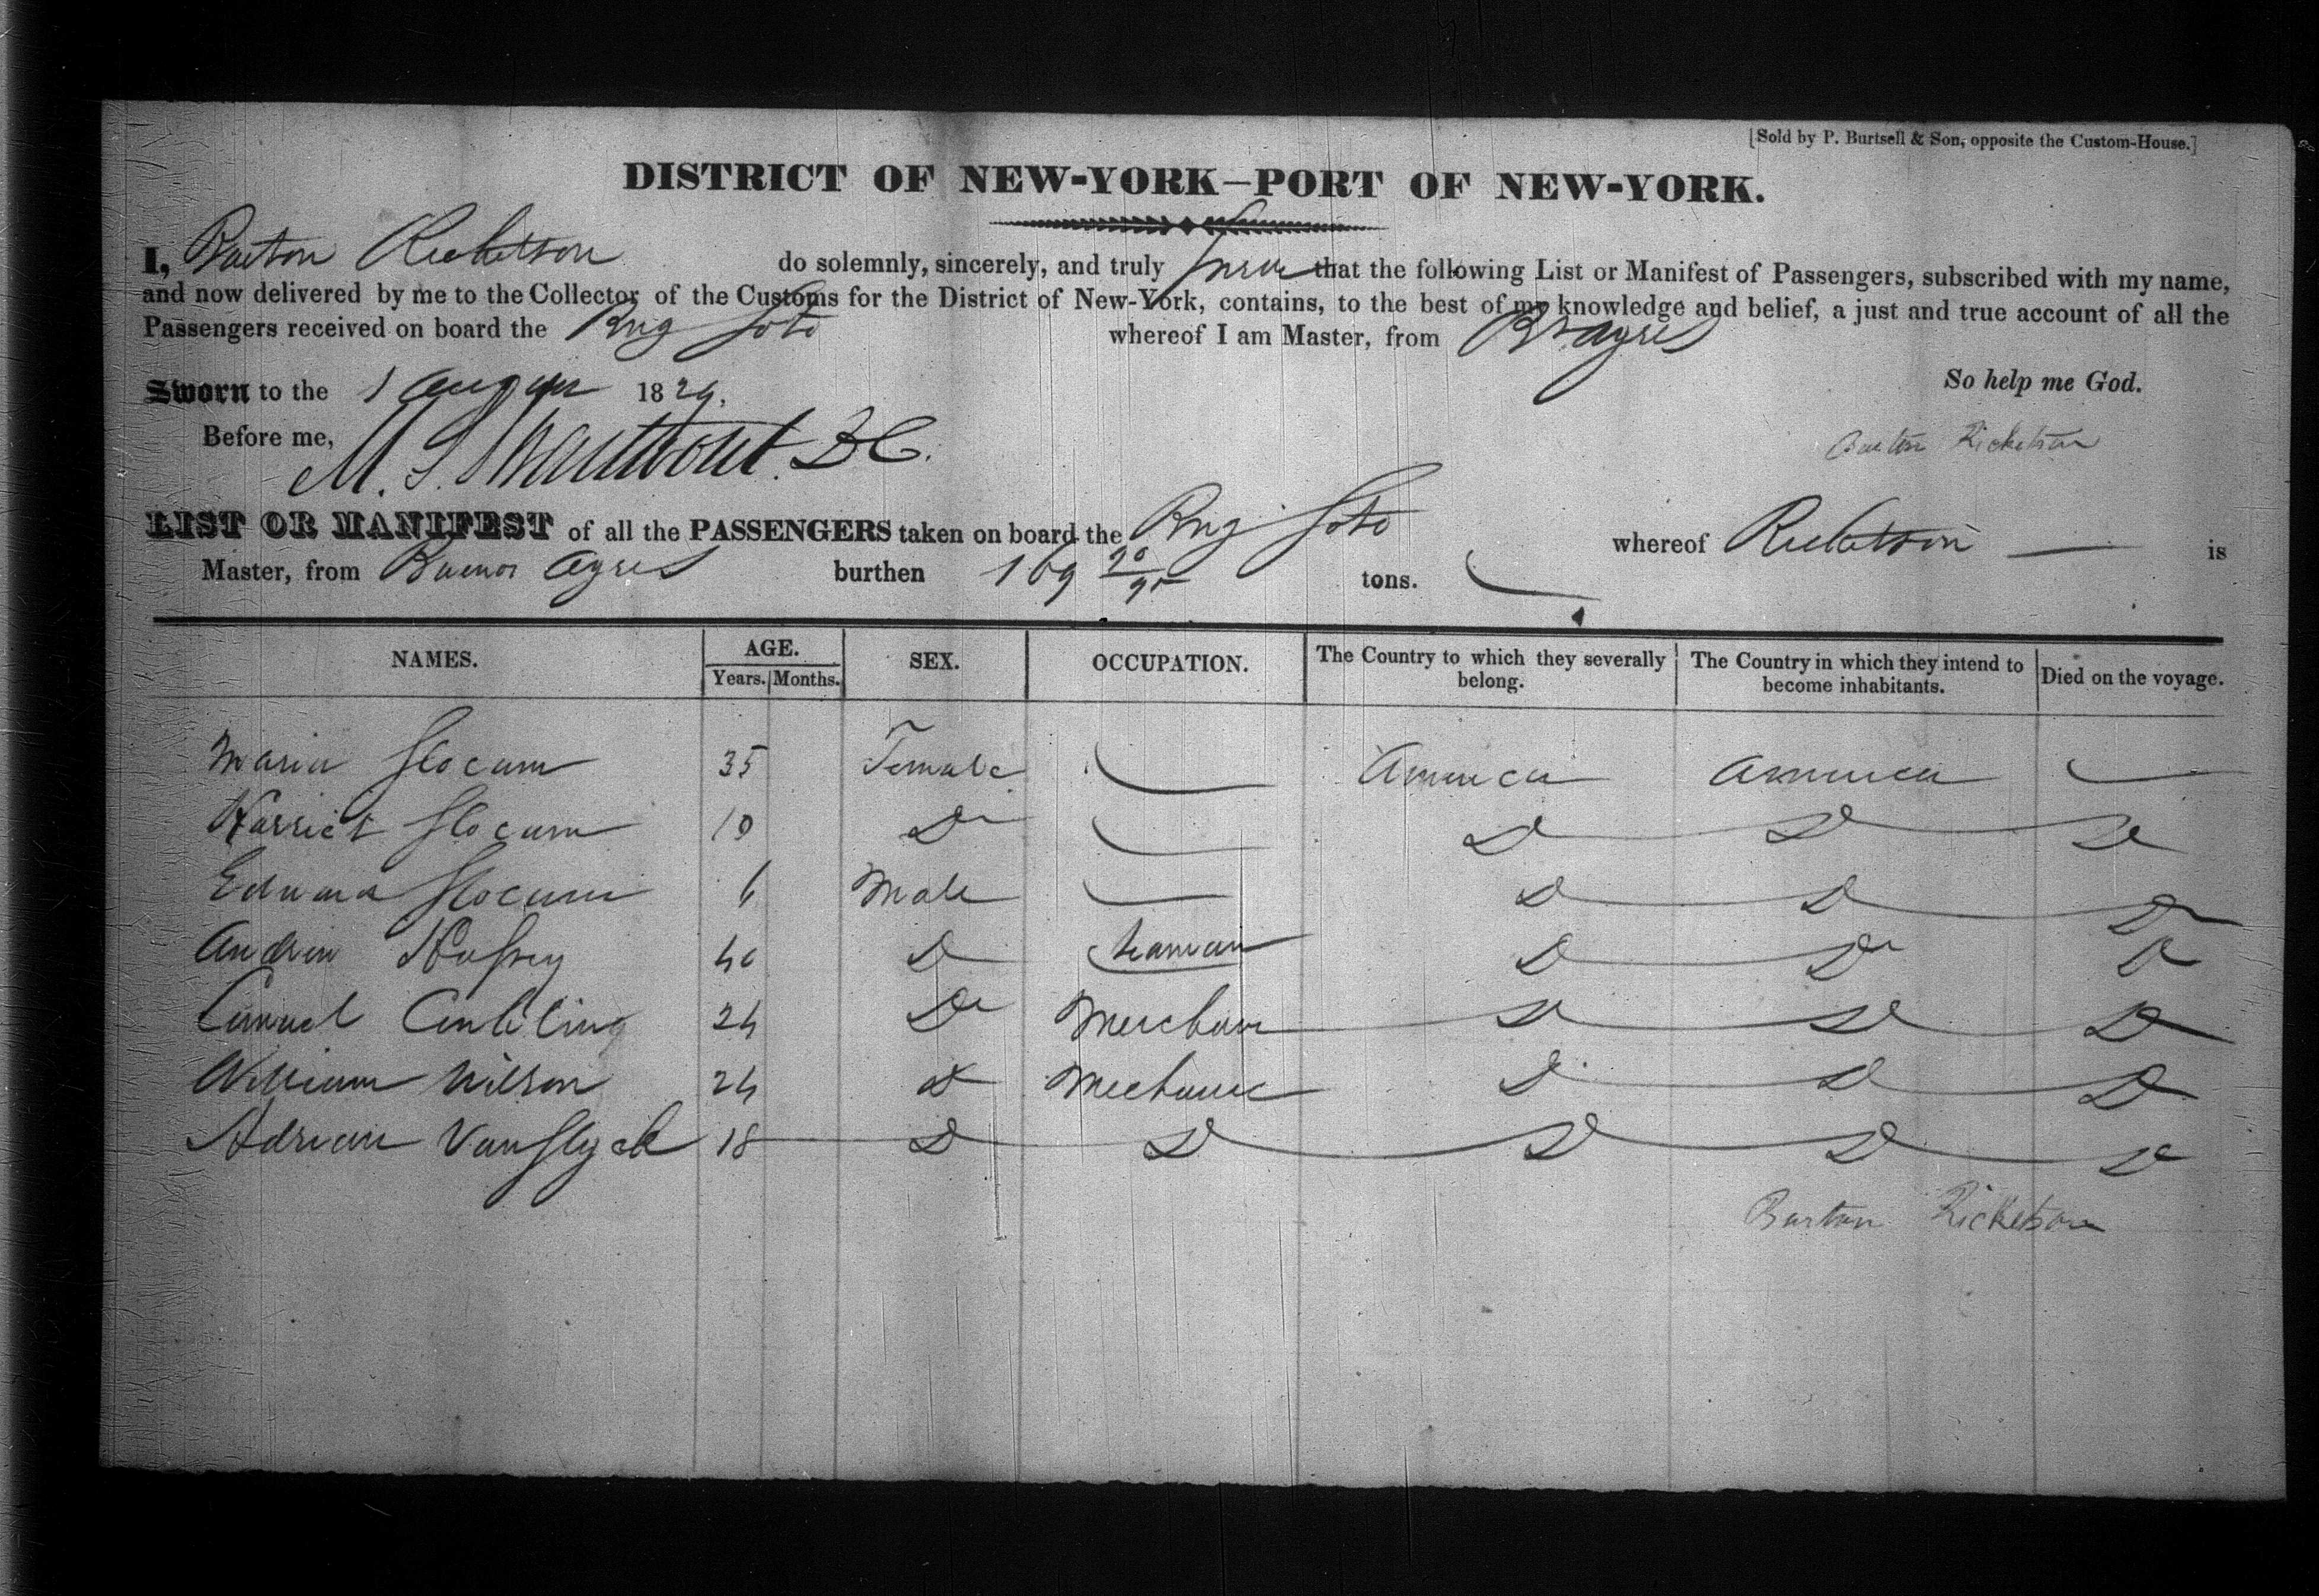 [Sold by P. Burtsell & Son, opposite the Custom-House.]
DISTRICT OF NEW-YORK—PORT OF NEW-YORK.
I, Barton Ricketson do solemnly, sincerely, and truly swear that the following List or Manifest of Passengers, subscribed with my name,
and now delivered by me to the Collector of the Customs for the District of New-York, contains, to the best of my knowledge and belief, a just and true account of all the
Passengers received on board the Brig Soto whereof I am Master, from Bs ayres
So help me God.
Sworn to the 1 august 1829.
Before me, M. S. Swartwout. DC.
Barton Ricketson
LIST OR MANIFEST of all the PASSENGERS taken on board the Brig Soto whereof Ricketson is
Master, from Buenos Ayres burthen 169 20/95 tons.
NAMES. AGE. Years. Months. SEX. OCCUPATION. The Country to which they severally belong. The Country in which they intend to become inhabitants. Died on the voyage.
Maria Slocum 35 Female America America
Harriet Slocum 10 Do Do Do Do
Edward Slocum 6 Male Do Do Do
Andrew Hussey 40 Do Seaman Do Do Do
24 Do Merchant Do Do Do
William Wilson 24 Do Mechanic Do Do Do
Adrian Vanslyck 18 Do Do Do Do Do
Barton Ricketson